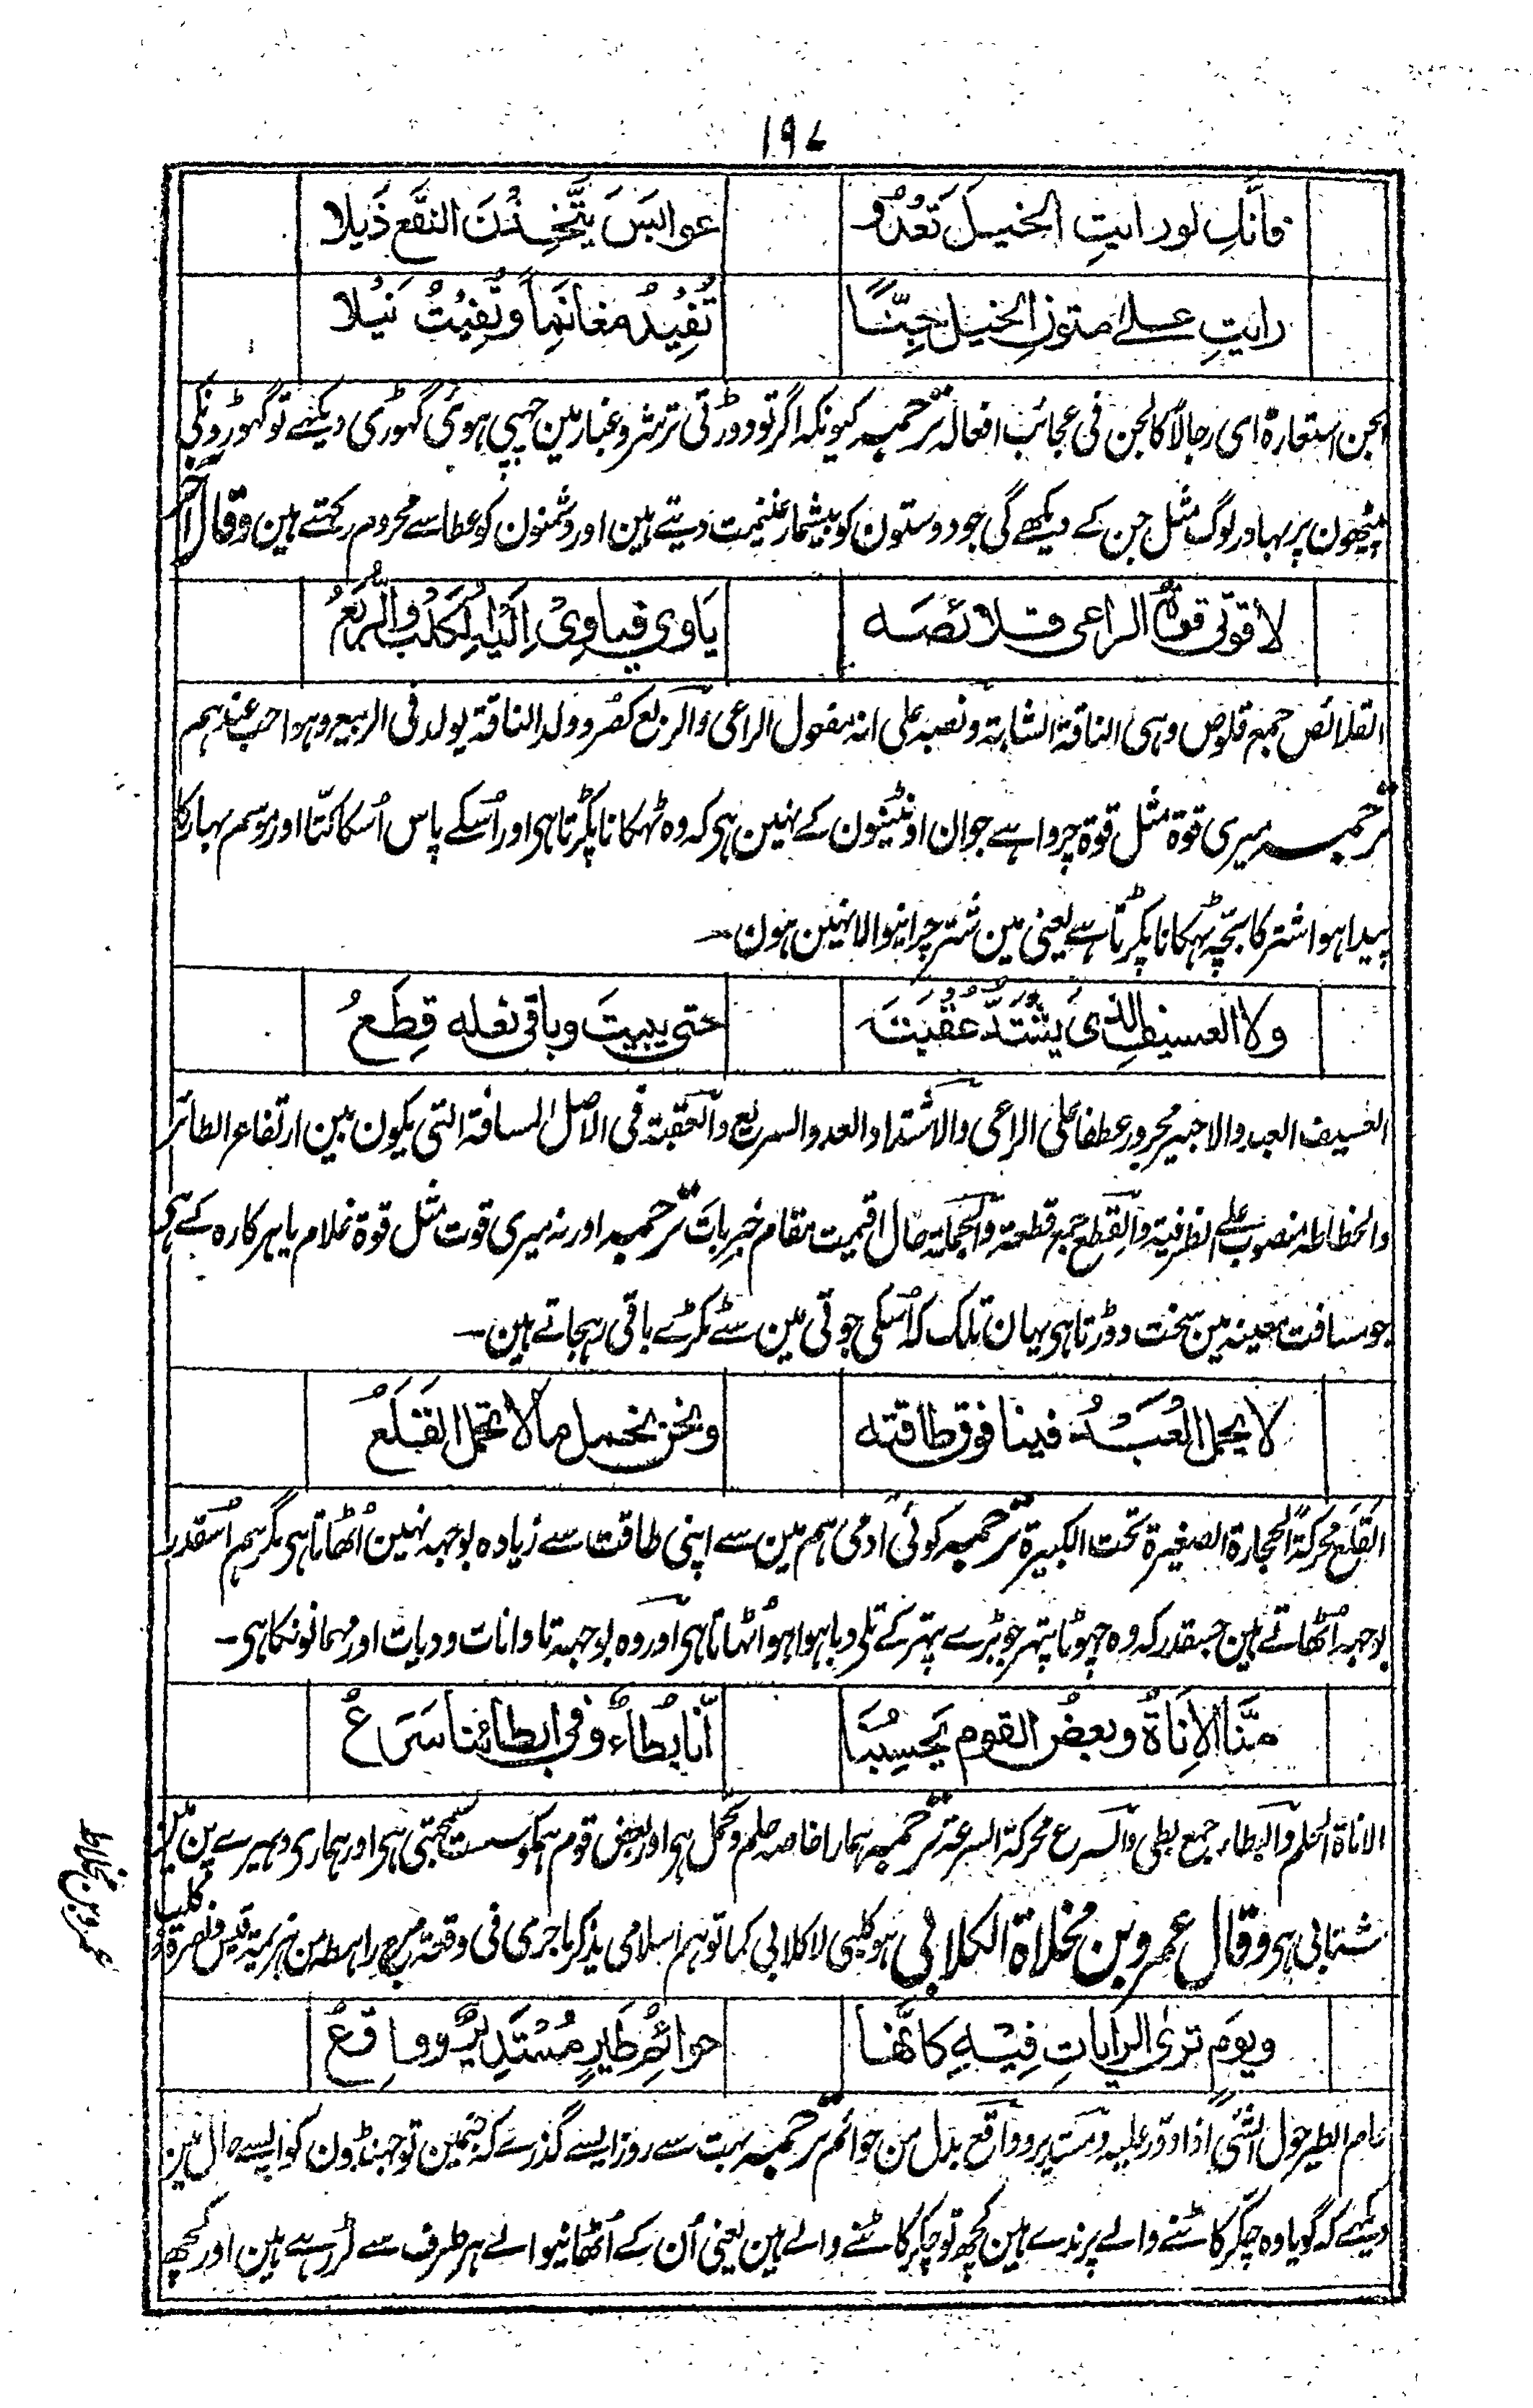 ۱۹۷
فانَّكِ لو رايتِ الخيلَ تَعْدُو عوابسَ يتَّخِذْنَ النقعَ ذَيلا
رايتِ علىٰ متونِ الخيل جِنًّا تُفِيْدُ مغانِمًا وتُفِيْتُ نَيْلا
الجن استعارة ای رجالاً کالجن فی عجائب افعالہ ترجمہ کیونکہ اگر تو دوڑتی ترشرو غبار مین چھپی ہوئی گہوڑی دیکھے تو گہوڑونکی
پیٹھون پر بہادر لوگ مثل جن کے دیکھے گی جو دوستون کو بیشمار غنیمت دیتے ہین اور دشمنون کو عطا سے محروم رکھتے ہین وقال آخر
لا قوّتى قوّة الراعى قلائصَه يَاوِي فياوِىْ اِلَيْهِ الكلْبُ والرُّبَعُ
القلائص جمع قلوص وہی الناقة الشابة ونصبہ علی انہ مفعول الراعی والرُّبَع کصُرَد ولد الناقة یولد فی الربیع وہو احب عندہم
ترجمہ میری قوۃ مثل قوۃ چرواہے جوان اونٹنیون کے نہین ہی کہ وہ ٹہکانا پکڑتا ہی اور اُسکے پاس اُسکا کتّا اور موسم بہار کا
پیدا ہوا شتر کا بچّہ ٹہکانا پکڑتا ہے یعنی مین شتر چرانیوالا نہین ہون ـ
ولا العسيفِ الذى يشْتَدُّ عُقْبَتَه حتى يبيتَ وباقى نعله قِطَعُ
العسیف العبد والاجیر مجرور عطفا علی الراعی والاشتداد العدو السریع والعُقبة فی الاصل المسافة التی یکون بین ارتفاع الطائر
وانحطاطہ منصوب علی الظرفیة والقِطَع جمع قطعة والجملة حال اقیمت مقام خبر بات ترجمہ اور نہ میری قوت مثل قوۃ غلام یا ہرکارہ کے ہی
جو مسافت معینہ مین سخت دوڑتا ہی یہان تلک کہ اُسکی جوتی مین سے ٹکڑے باقی رہجاتے ہین ـ
لا يحمل العَبْدُ فينا فوق طاقته ونحن نحمل ما لا تحمل القَلَعُ
القَلَع محرکةً الحجارة الصغیرة تحت الکبیرة ترجمہ کوئی آدمی ہم مین سے اپنی طاقت سے زیادہ بوجہہ نہین اُٹھاتا ہی مگر ہم اُسقدر
بوجہہ اُٹھاتے ہین جسقدر کہ وہ چہوٹا پتہر جو بڑے پتہر کے تلی دبا ہوا ہو اُٹہاتا ہی اور وہ بوجہہ تاوانات و دیات اور مہمانونکا ہی ـ
منَّا الاَناةُ وبعضُ القوم يَحْسِبُنَا اَنّا بِطَاءٌ وفى ابطائنا سَرَعُ
الاناة الحلم والبطاء جمع بطی والسرع محرکة السرعة ترجمہ ہمارا خاصہ حلم و تحمل ہی اور بعض قوم ہمکو سست سمجہتی ہی اور ہماری دہیرے پن مین
شتابی ہی وقال عمرو بن مخلاة الکلابی ہو کلبی لا کلابی کما توہم اسلامی یذکر ما جری فی وقعة مرج راہط من ہزیمة قیس ونصرة کلب
عمرو بن مخلاة
ويوم ترى الراياتِ فِيْهِ كانَّها حوائمُ طيرٍ مُسْتَدِيْرٌ وواقعُ
حام الطیر حول الشئ اذا دوّر علیہ ومستدیر وواقع بدل من حوائم ترجمہ بہت سے روز ایسے گذرے کہ جنمین تو جہنڈون کو ایسے حال مین
دیکھے کہ گویا وہ چکر کاٹنے والے پرندے ہین کچھ تو چکر کاٹنے والے ہین یعنی اُن کے اُٹھانیوالے ہر طرف سے لڑ رہے ہین اور کچھ